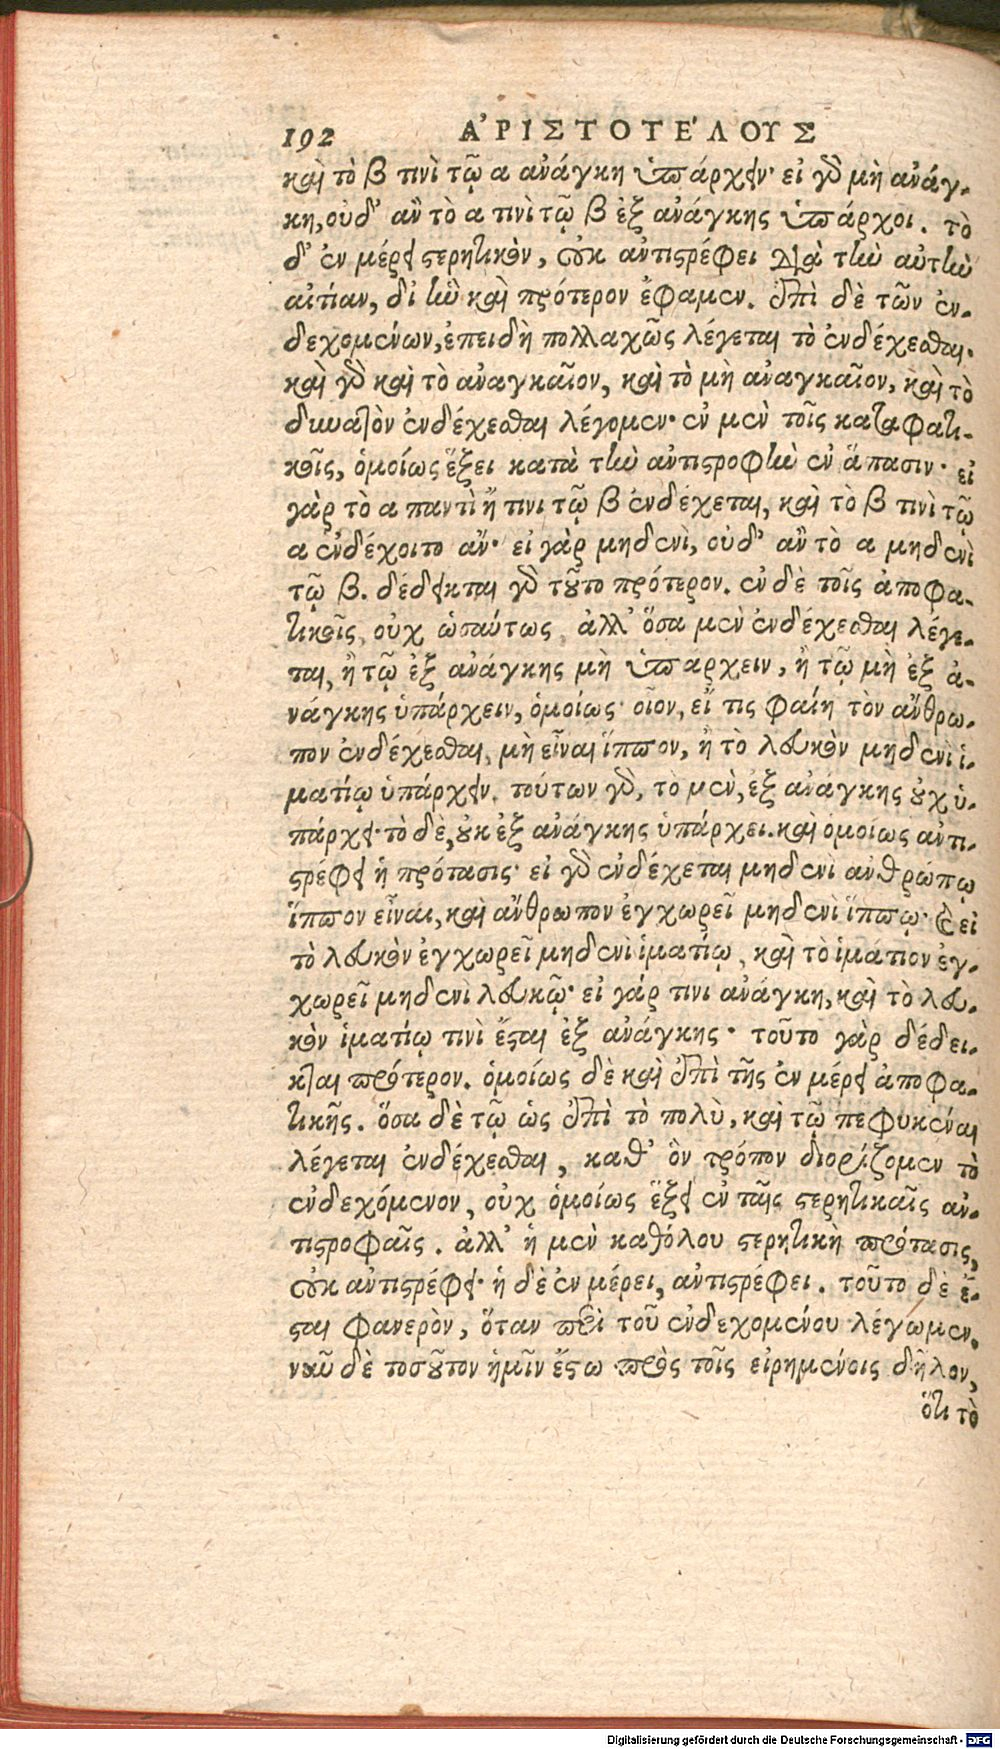 192 ἈΡΙΣΤΟΤΈΛΟΥΣ
καὶ τὸ β τινὶ τῷ α ἀνάγκη ὑπάρχειν· εἰ γὸ μὴ ἀνάγ-
κη, οὐδ' ἂν τὸ α τινὶ τῷ β ἐξ ἀνάγκης ὑπάρχοι. τὸ
δ' ἐν μέρει στερητικὸν, οὐκ ἀντιστρέφει διὰ τὴν αὐτὴν
αἰτίαν, δι' ἣν καὶ πρότερον ἔφαμεν. ἐπὶ δὲ τῶν ἐν-
δεχομένων, ἐπειδὴ πολλαχῶς λέγεται τὸ ἐνδέχεσθαι·
καὶ γὸ καὶ τὸ ἀναγκαῖον, καὶ τὸ μὴ ἀναγκαῖον, καὶ τὸ
δυνατὸν ἐνδέχεσθαι λέγομεν· ἐν μὲν τοῖς καταφατι-
κοῖς, ὁμοίως ἕξει κατὰ τὴν ἀντιστροφὴν ἐν ἅπασιν· εἰ
γὰρ τὸ α παντὶ ἤ τινι τῷ β ἐνδέχεται, καὶ τὸ β τινὶ τῷ
α ἐνδέχοιτο ἄν· εἰ γὰρ μηδενὶ, οὐδ' ἂν τὸ α μηδενὶ
τῷ β. δέδεικται γὸ τοῦτο πρότερον. ἐν δὲ τοῖς ἀποφα-
τικοῖς οὐχ ὡσαύτως, ἀλλ' ὅσα μὲν ἐνδέχεσθαι λέγε-
ται, ἢ τῷ ἐξ ἀνάγκης μὴ ὑπάρχειν, ἢ τῷ μὴ ἐξ ἀ-
νάγκης ὑπάρχειν, ὁμοίως· οἷον, εἴ τις φαίη τὸν ἄνθρω-
πον ἐνδέχεσθαι, μὴ εἶναι ἵππον, ἢ τὸ λευκὸν μηδενὶ ἱ-
ματίῳ ὑπάρχειν. τούτων γὸ, τὸ μὲν, ἐξ ἀνάγκης οὐχ ὑ-
πάρχει· τὸ δὲ, οὐκ ἐξ ἀνάγκης ὑπάρχει. καὶ ὁμοίως ἀντι-
στρέφει ἡ πρότασις· εἰ γὸ ἐνδέχεται μηδενὶ ἀνθρώπῳ
ἵππον εἶναι, καὶ ἄνθρωπον ἐγχωρεῖ μηδενὶ ἵππῳ· καὶ εἰ
τὸ λευκὸν ἐγχωρεῖ μηδενὶ ἱματίῳ, καὶ τὸ ἱμάτιον ἐγ-
χωρεῖ μηδενὶ λευκῷ· εἰ γάρ τινι ἀνάγκη, καὶ τὸ λευ-
κὸν ἱματίῳ τινὶ ἔσται ἐξ ἀνάγκης· τοῦτο γὰρ δέδει-
κται πρότερον. ὁμοίως δὲ καὶ ἐπὶ τῆς ἐν μέρει ἀποφα-
τικῆς. ὅσα δὲ τῷ ὡς ἐπὶ τὸ πολὺ, καὶ τῷ πεφυκέναι
λέγεται ἐνδέχεσθαι, καθ' ὃν τρόπον διορίζομεν τὸ
ἐνδεχόμενον, οὐχ ὁμοίως ἕξει ἐν ταῖς στερητικαῖς ἀν-
τιστροφαῖς. ἀλλ' ἡ μὲν καθόλου στερητικὴ πρότασις,
οὐκ ἀντιστρέφει· ἡ δὲ ἐν μέρει, ἀντιστρέφει. τοῦτο δὲ ἔ-
σται φανερὸν, ὅταν περὶ τοῦ ἐνδεχομένου λέγωμεν.
νῦν δὲ τοσοῦτον ἡμῖν ἔστω πρὸς τοῖς εἰρημένοις δῆλον,
ὅτι τὸ
Digitalisierung gefördert durch die Deutsche Forschungsgemeinschaft - DFG